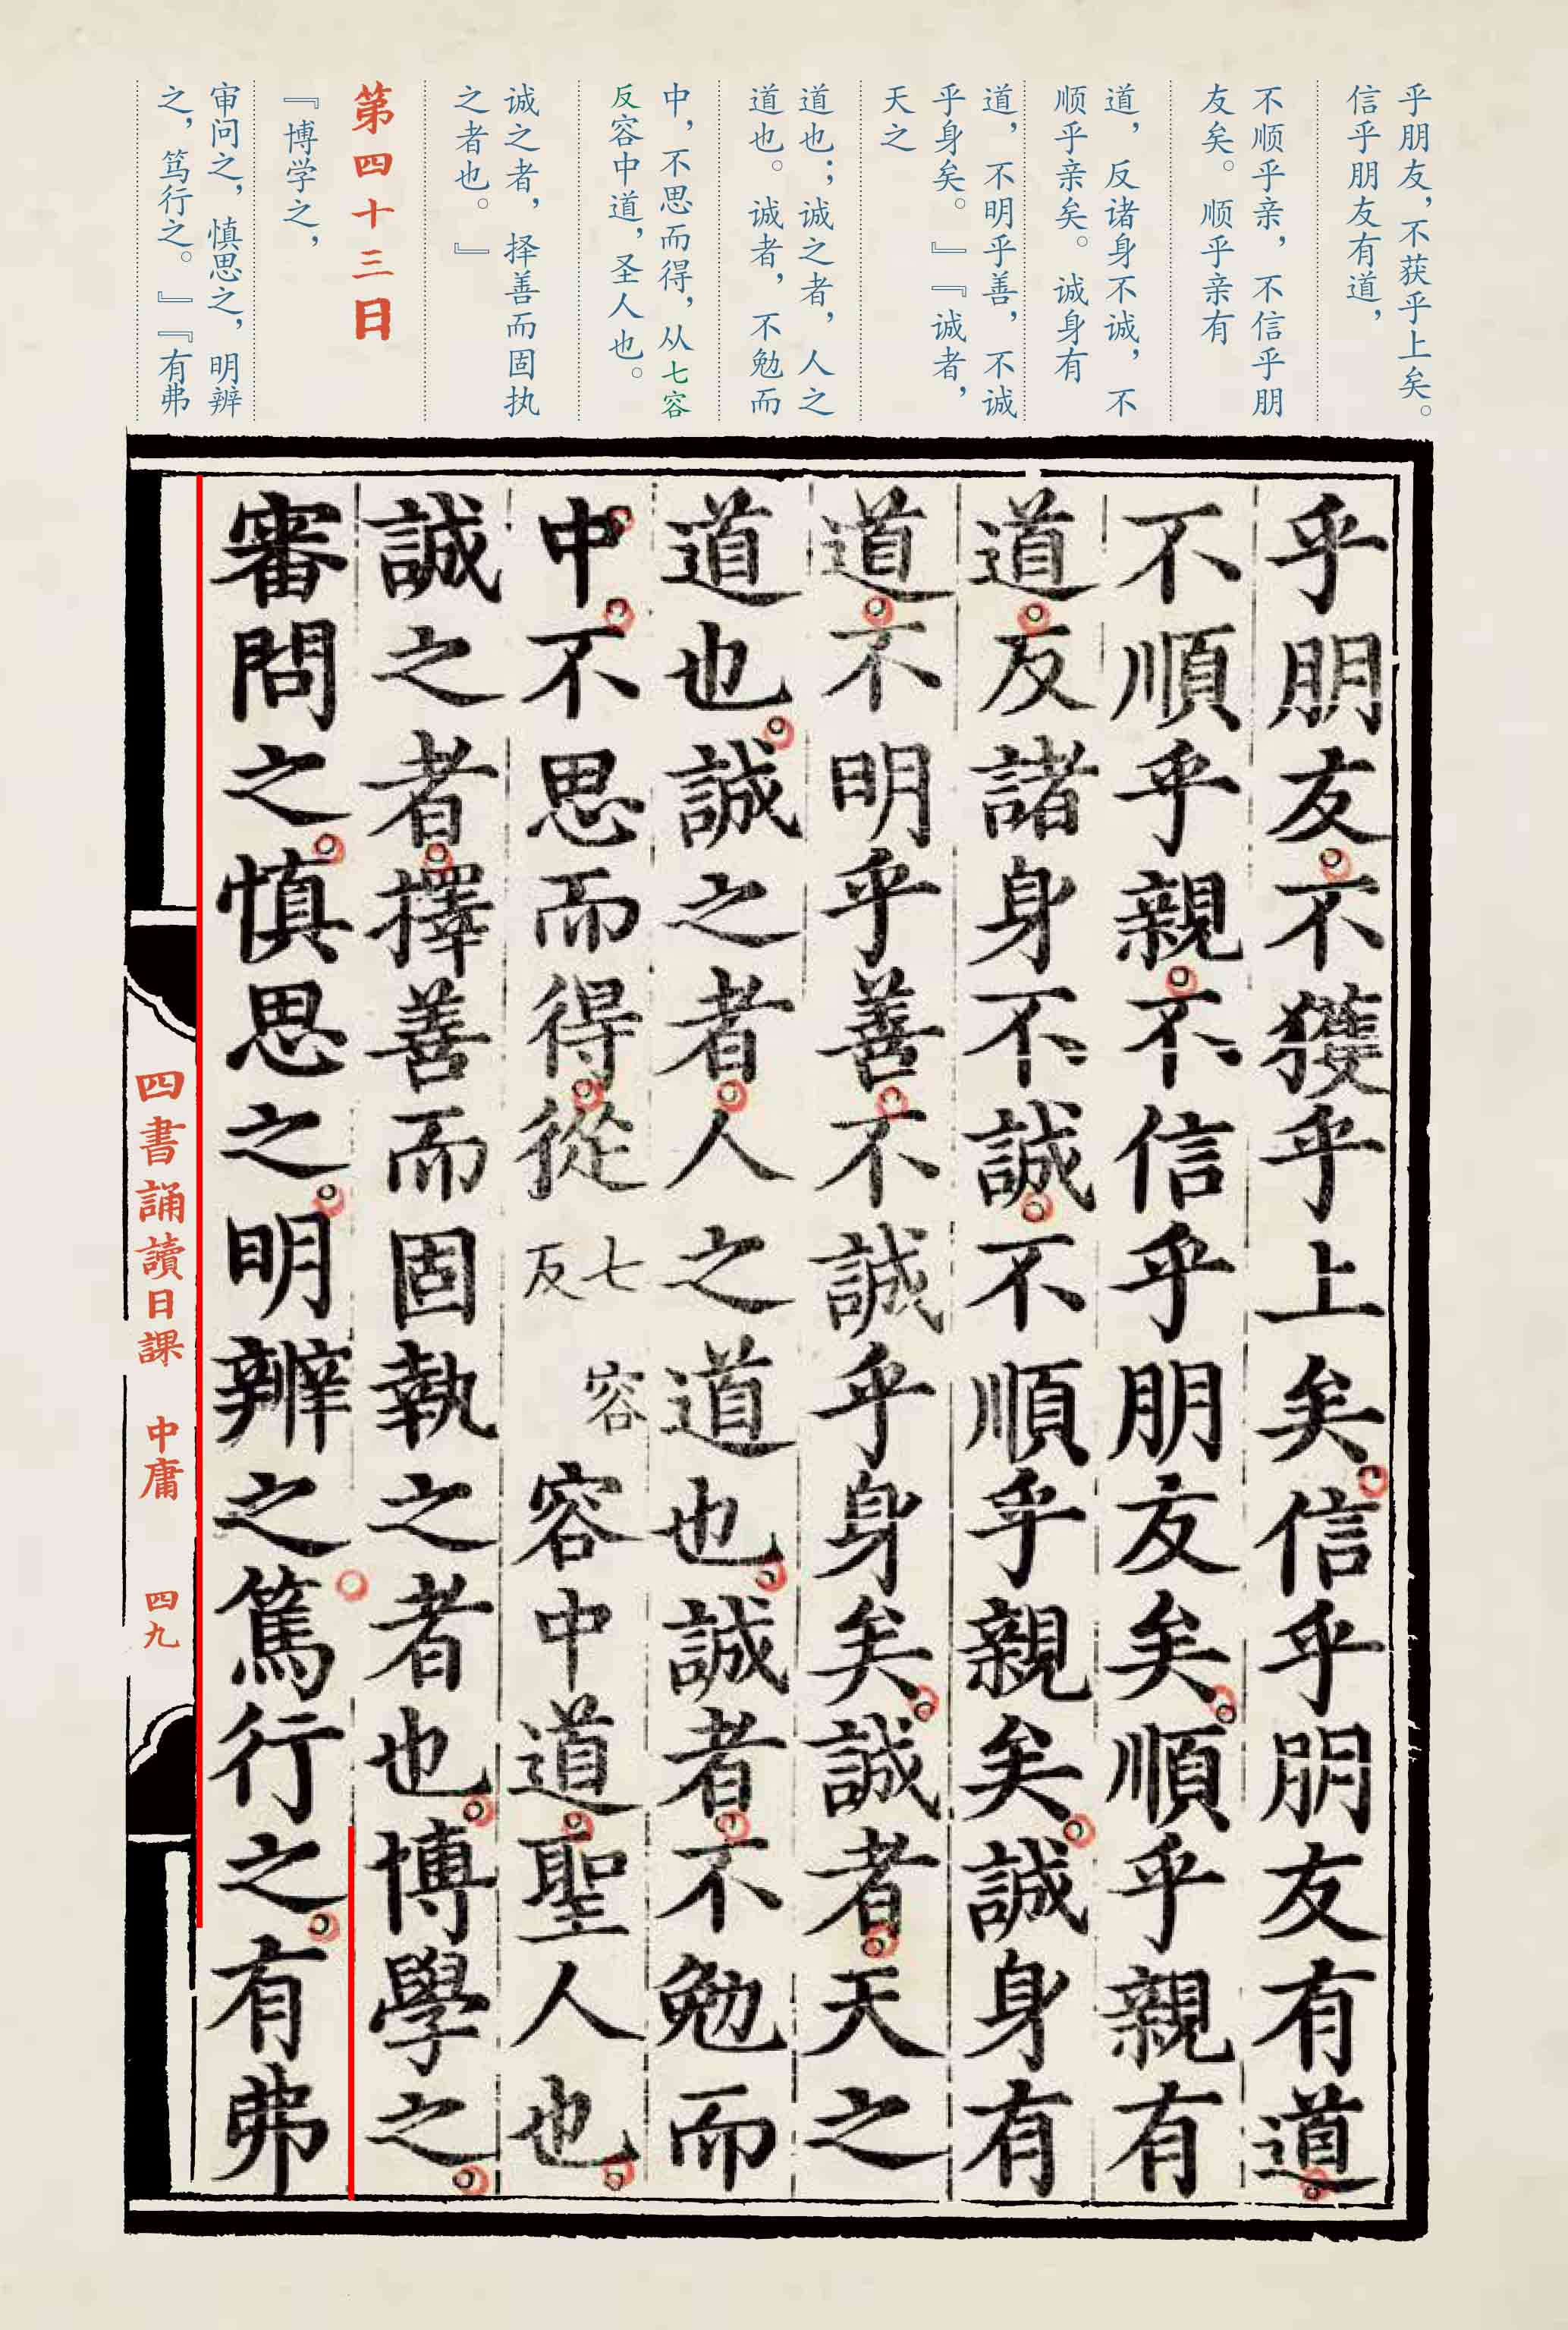 乎朋友，不获乎上矣。
信乎朋友有道，
不顺乎亲，不信乎朋
友矣。顺乎亲有
道，反诸身不诚，不
顺乎亲矣。诚身有
道，不明乎善，不诚
乎身矣。』『诚者，
天之
道也；诚之者，人之
道也。诚者，不勉而
中，不思而得，从七容
反容中道，圣人也。
诚之者，择善而固执
之者也。』
第四十三日
『博学之，
审问之，慎思之，明辨
之，笃行之。』『有弗
乎朋友不獲乎上矣信乎朋友有道
不順乎親不信乎朋友矣順乎親有
道反諸身不誠不順乎親矣誠身有
道不明乎善不誠乎身矣誠者天之
道也誠之者人之道也誠者不勉而
中不思而得從七容反容中道聖人也
誠之者擇善而固執之者也博學之
審問之慎思之明辨之篤行之有弗
四書誦讀日課 中庸 四九